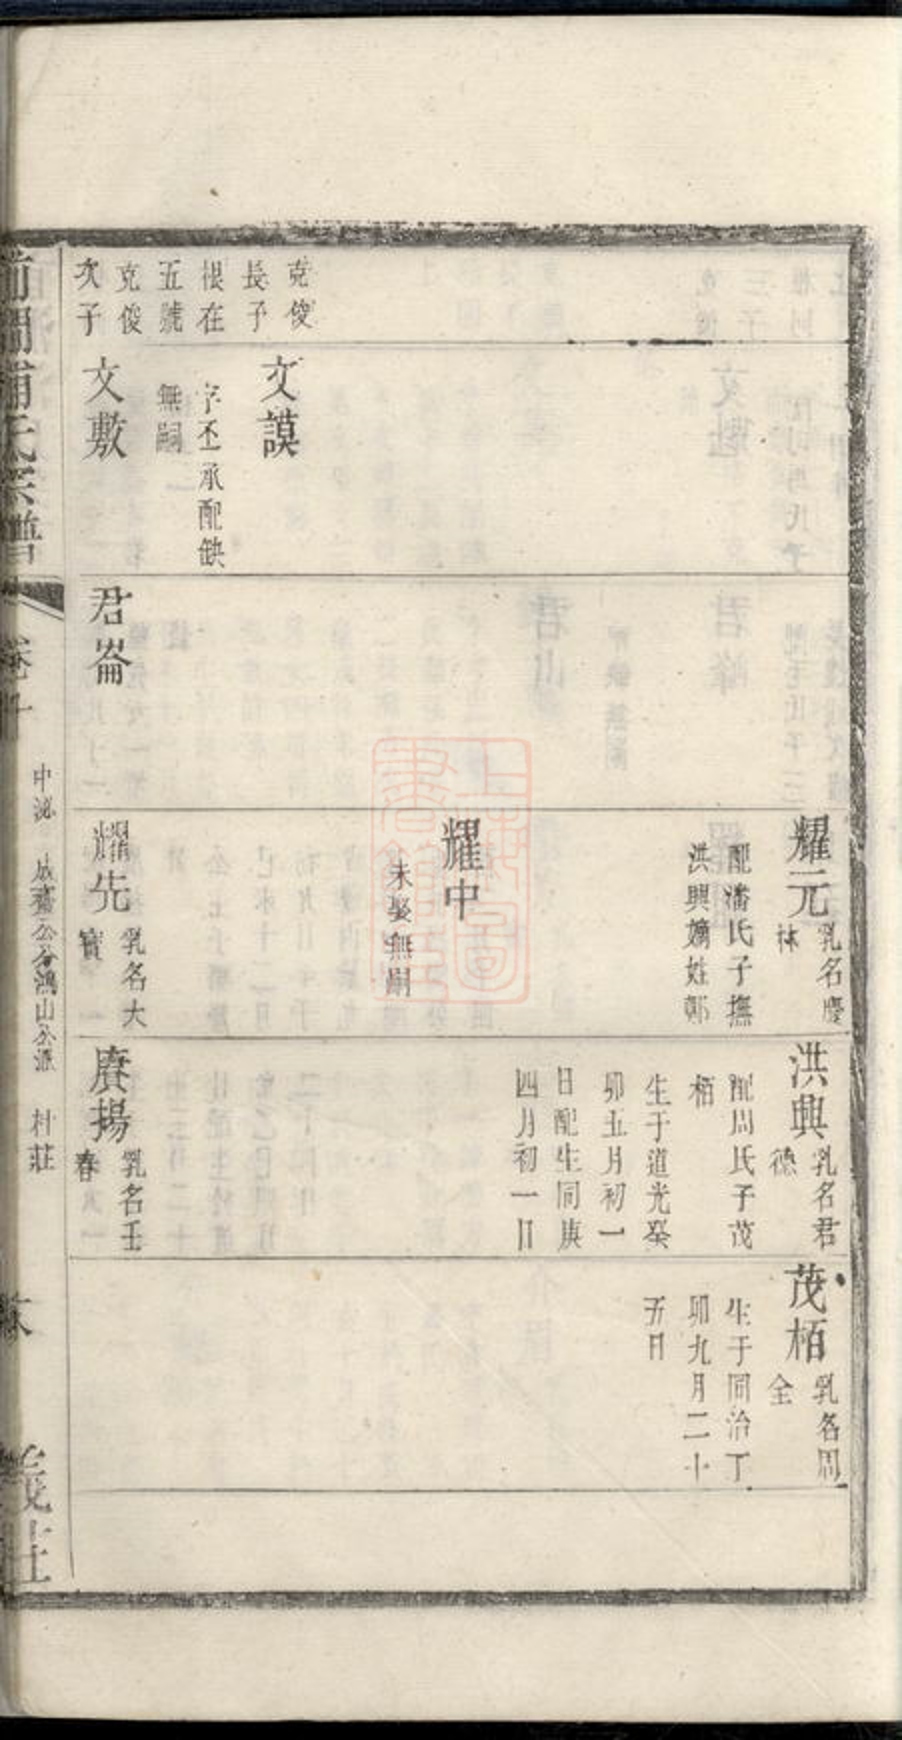 克俊
長子
根在
五號
克俊
次子
文謨
字丕承配缺
無嗣
文敷
君崙
耀元
乳名慶
林
配潘氏子撫
洪興嫡姓鄭
耀中
未娶無嗣
耀先
乳名大
寶
洪興
乳名君
德
配周氏子茂
栢
生于道光癸
卯五月初一
日配生同庚
四月初一日
賡揚
乳名壬
春
茂栢
乳名周
全
生于同治丁
卯九月二十
五日
前澗浦氏宗譜
卷十
中泌
公派
村莊
義莊
上海圖
書館藏